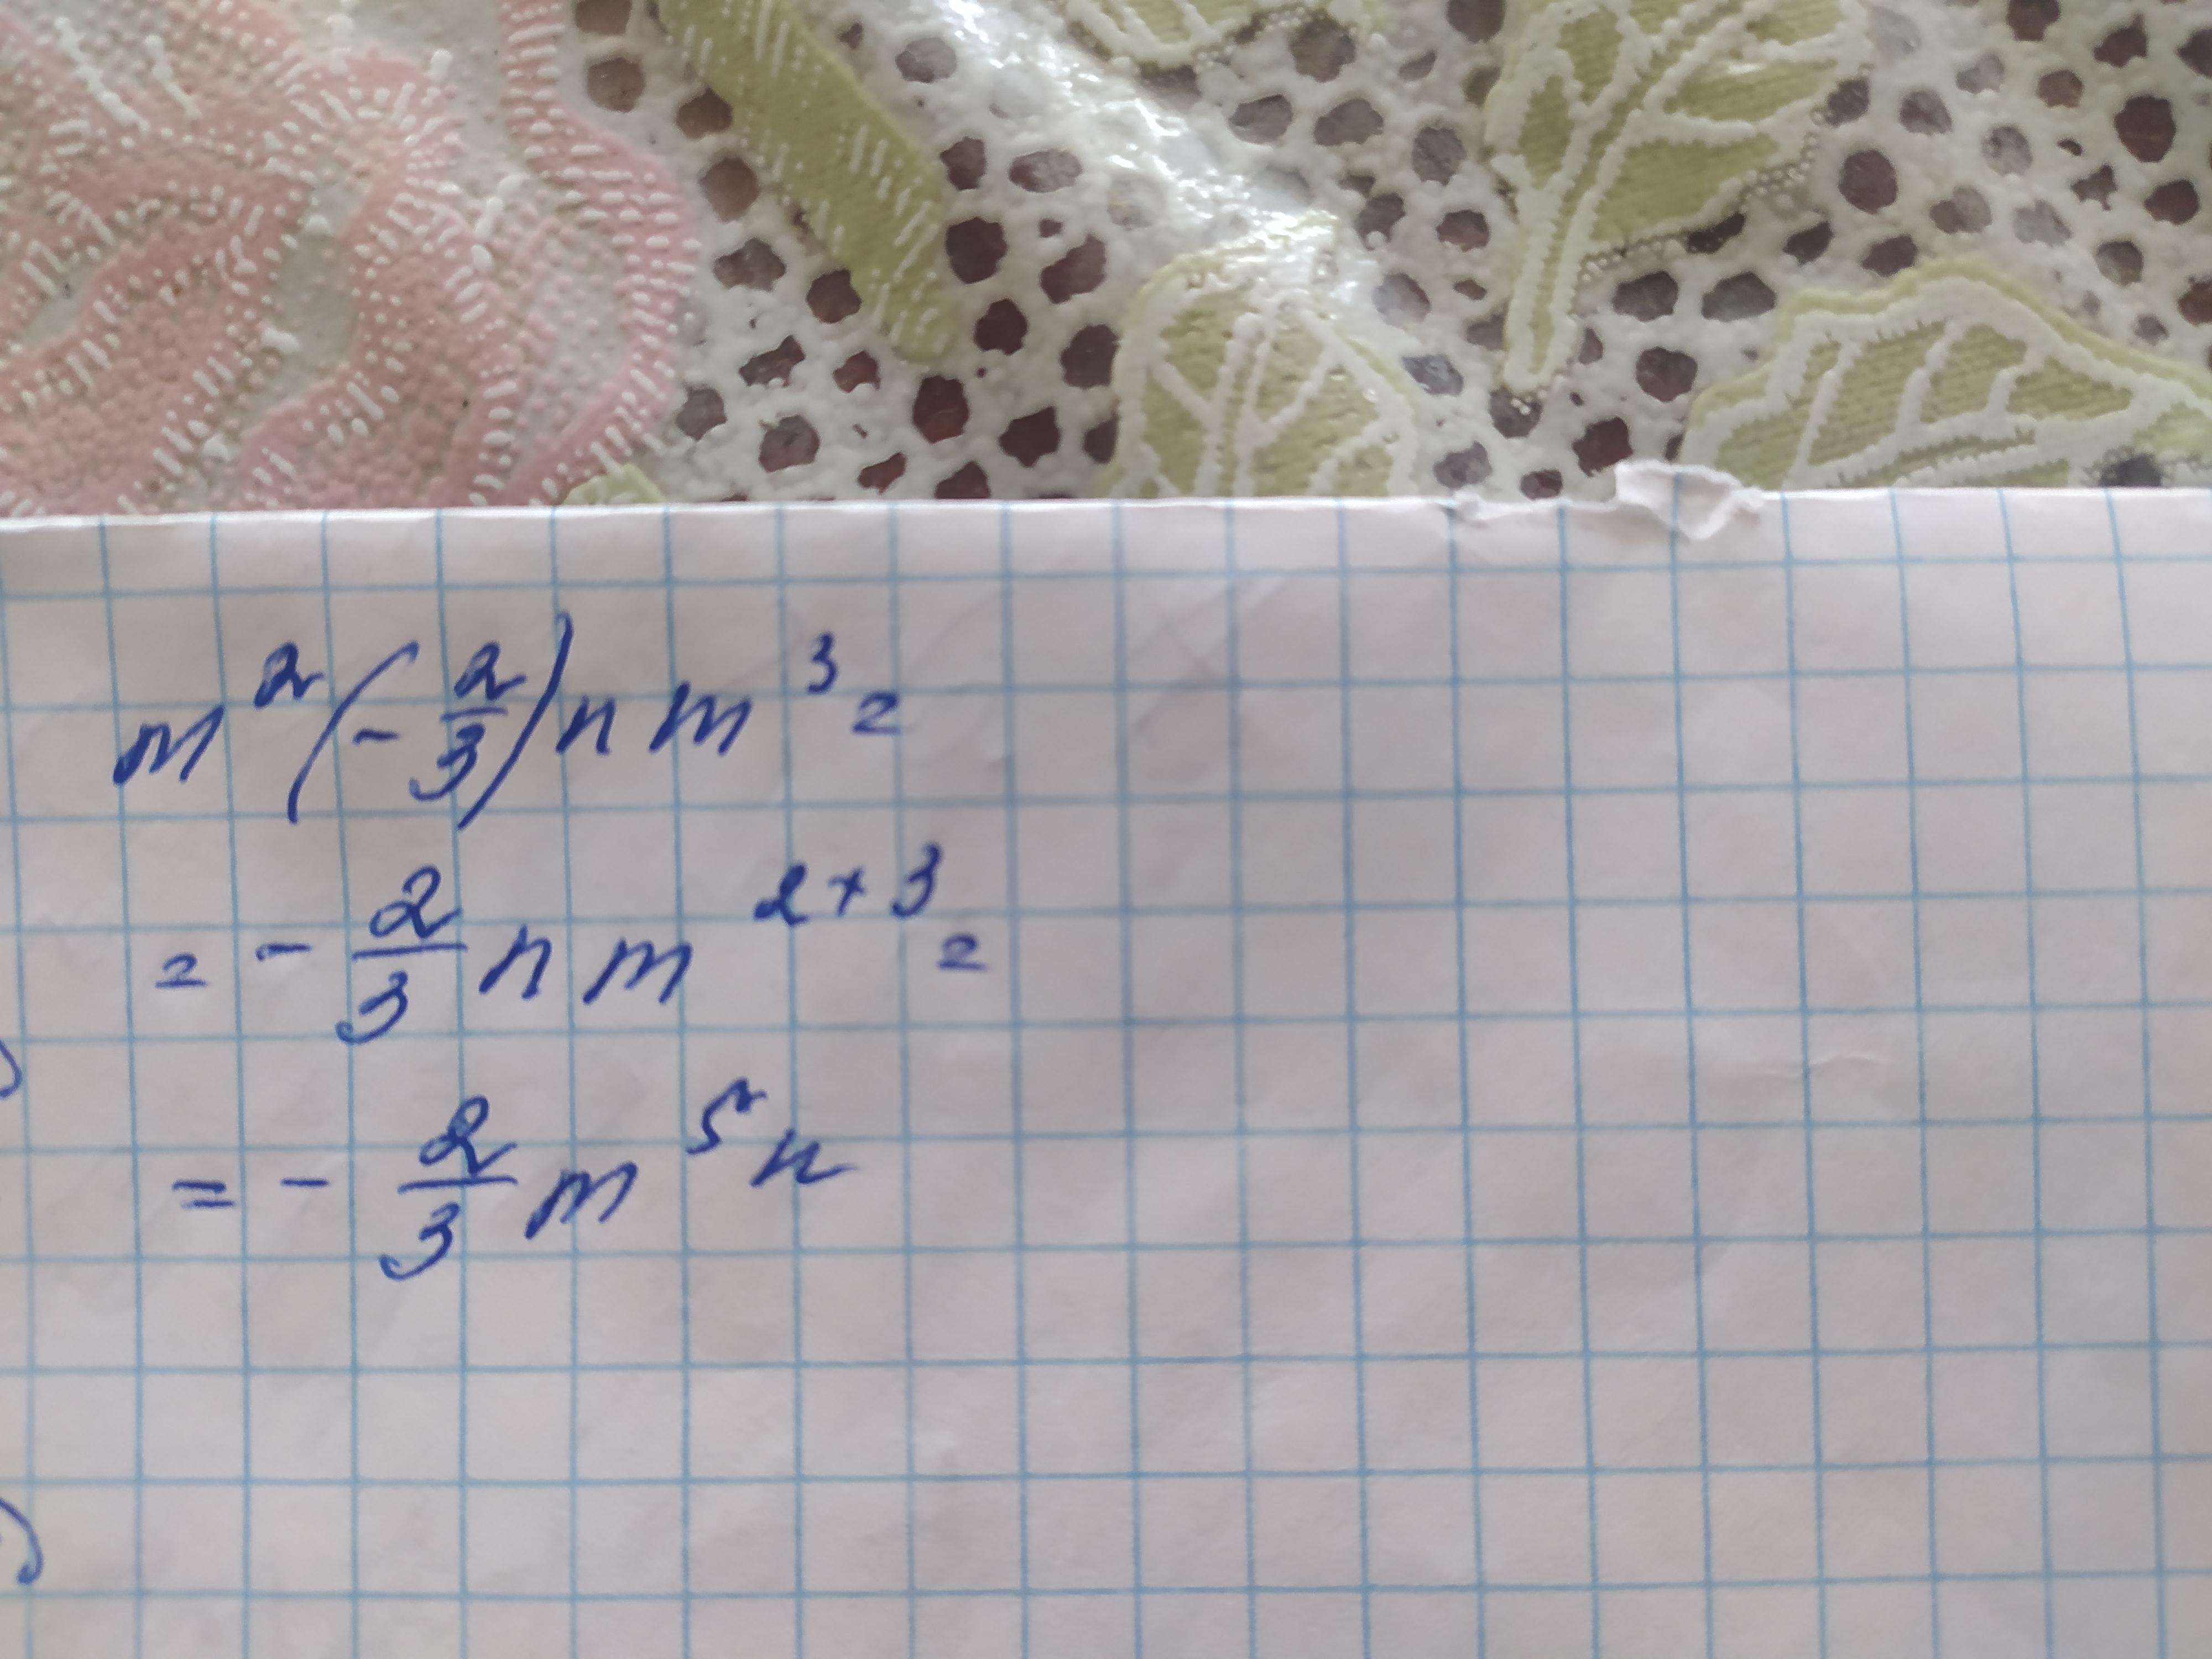 m²(-2/3)nm³=
= -2/3 nm²⁺³=
= -2/3 m⁵n
)
)